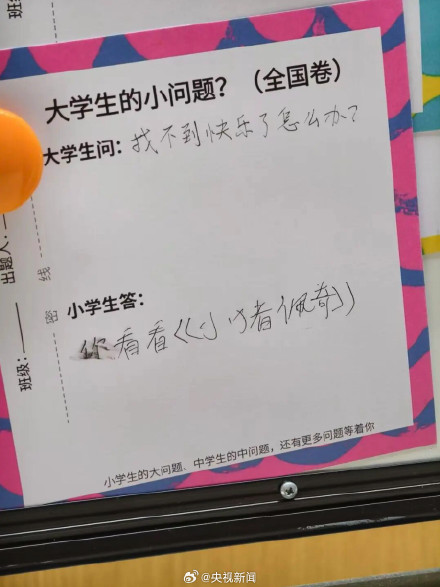 大学生的小问题？（全国卷）
大学生问：找不到快乐了怎么办？
小学生答：
你看看《小猪佩奇》
小学生的大问题、中学生的中问题，还有更多问题等着你
班级：
出题人：
密
线
班级
@央视新闻